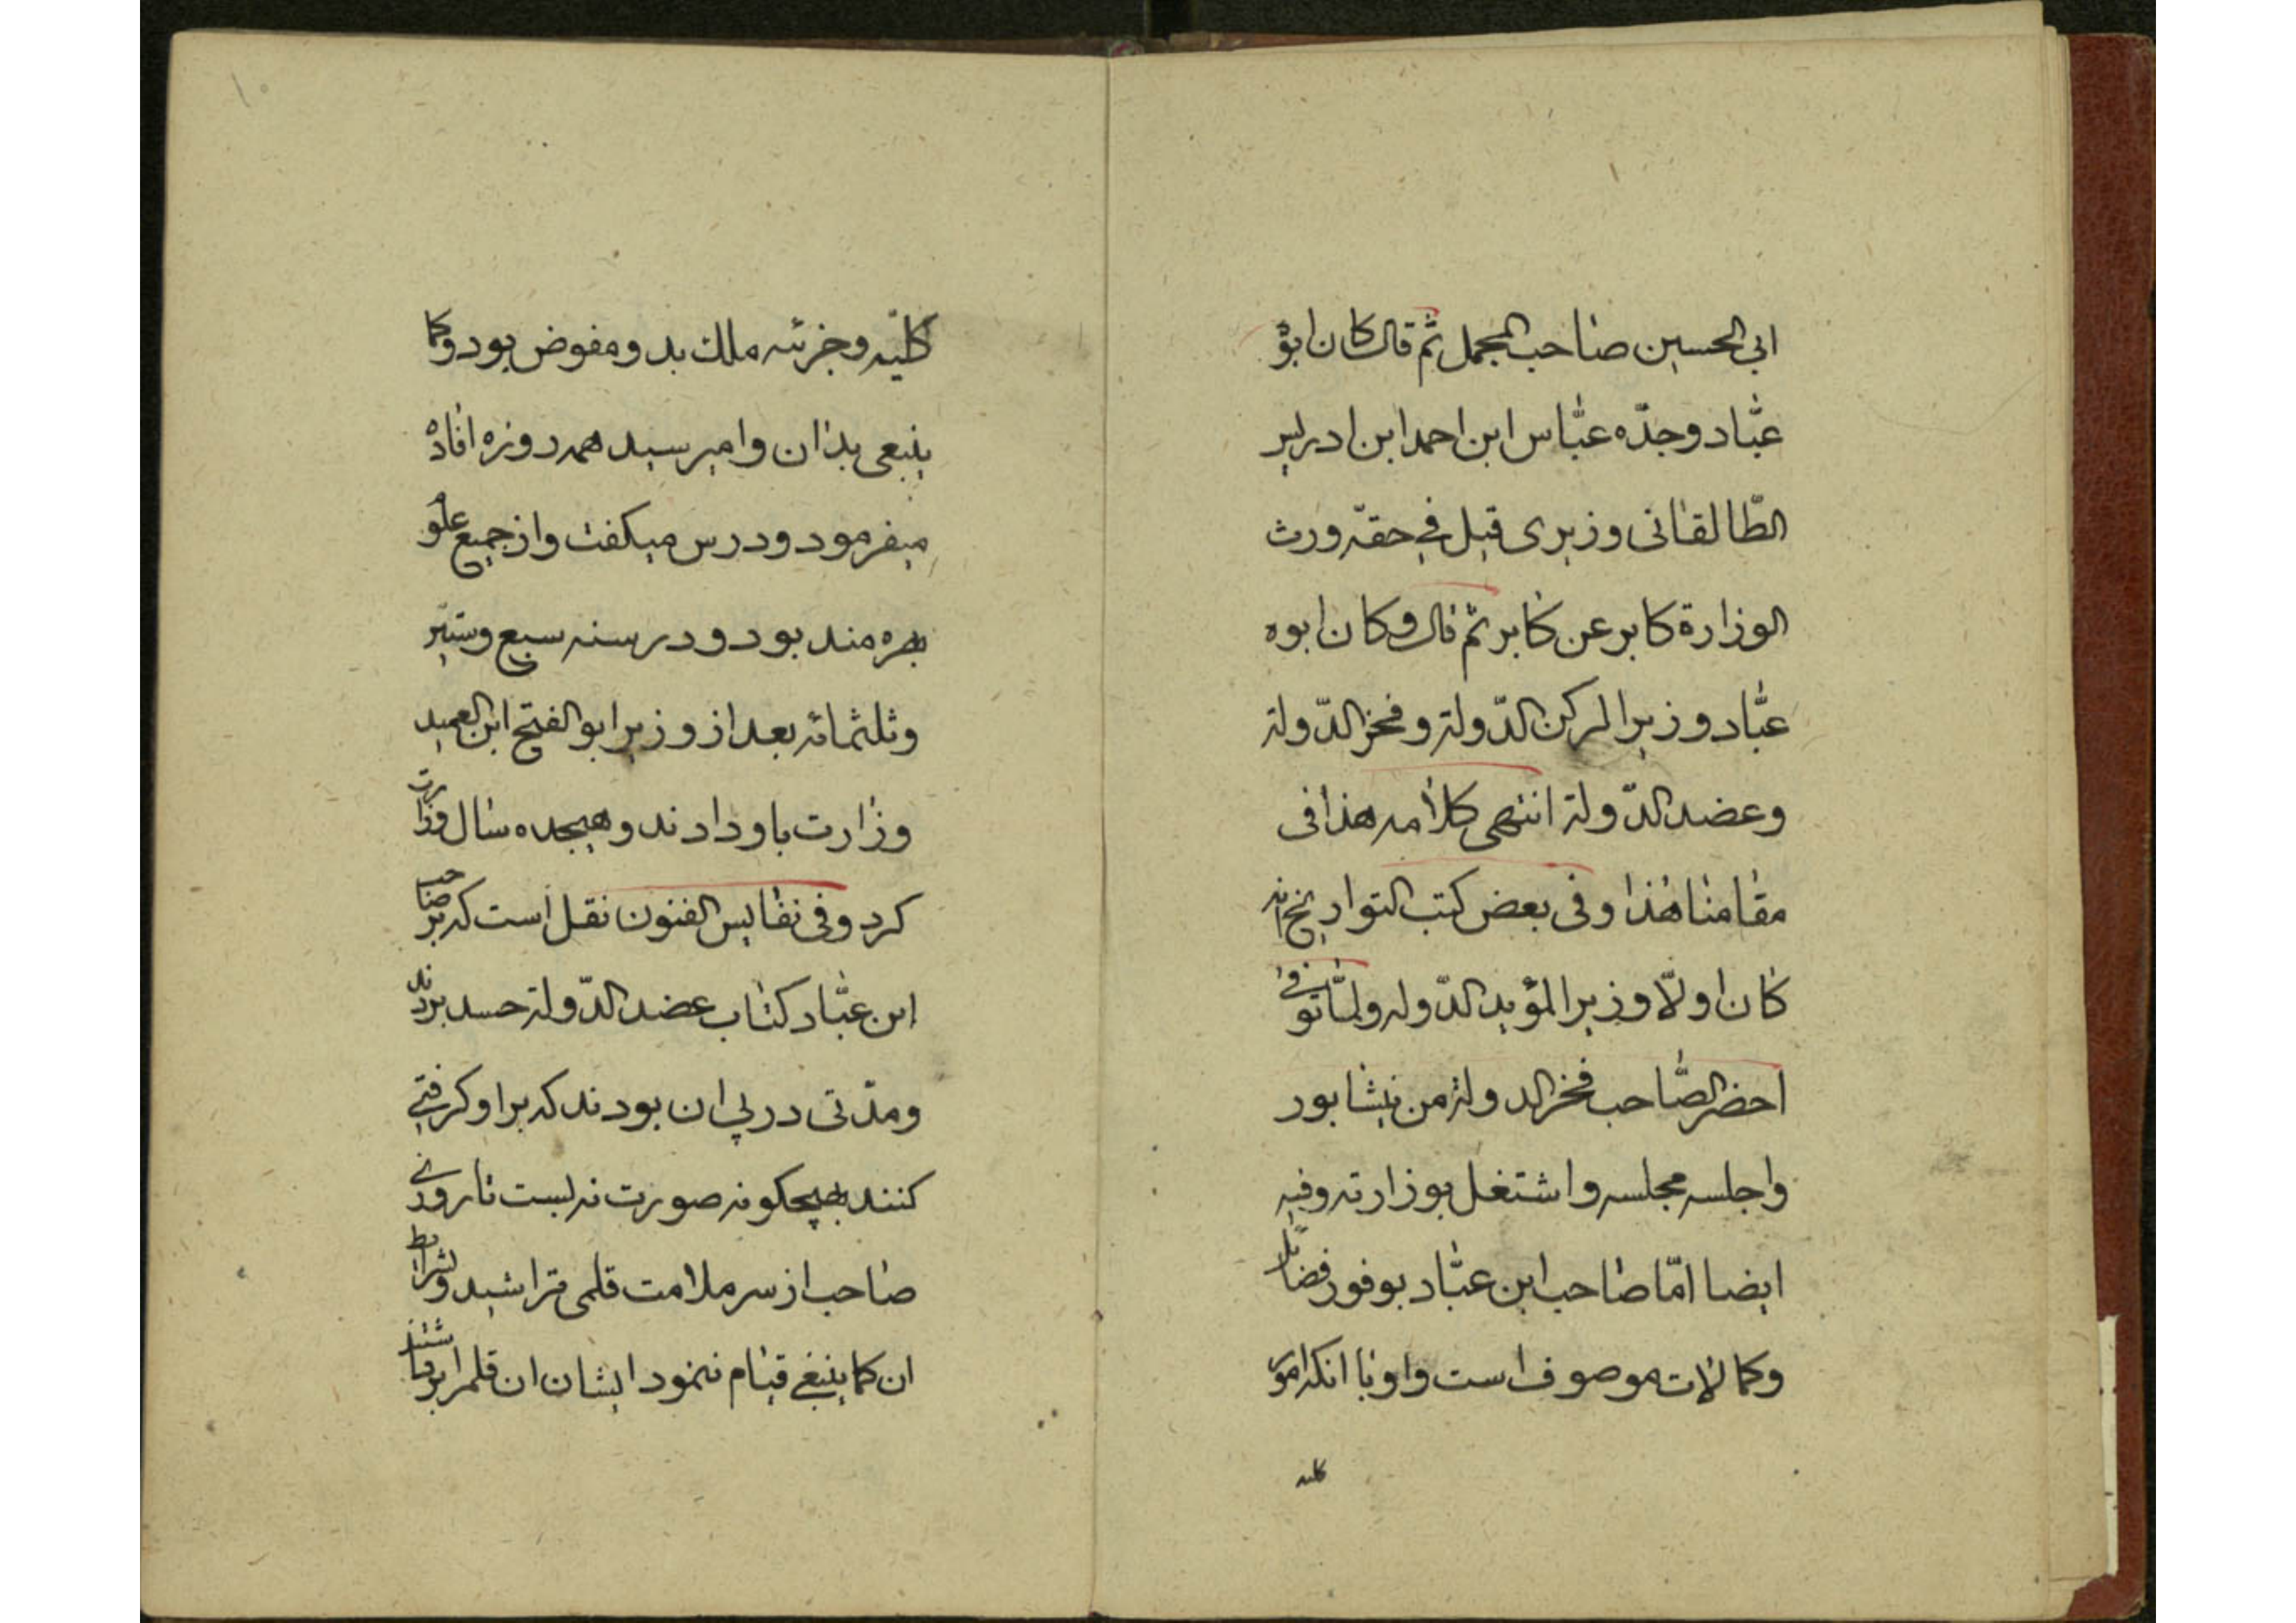 ابی الحسین صاحب المجمل ثم قال کان ابوه
عبّاد وجدّه عبّاس ابن احمد ابن ادریس
الطّالقانی وزیری قیل فی حقه ورث
الوزارة کابر عن کابر ثم قال وکان ابوه
عبّاد وزیرا لرکن الدّولة وفخر الدّولة
وعضد الدّولة انتهی کلامه هذا فی
مقامنا هذا وفی بعض کتب التواریخ انه
کان اولّا وزیرا لمؤید الدّوله ولمّا توفی
احضر الصّاحب فخر الدولة من نیشابور
واجلسه مجلسه واشتغل بوزارته وفیه
ایضا امّا صاحب ابن عبّاد بوفور فضایل
وکمالات موصوف است واو با انکه امور
کلیه
۱۰
کلیّه وجزئیه ملک بدو مفوض بود وکما
ینبغی بدان وامیرسید همه روزه افاده
میفرمود ودرس میکفت واز جمیع علوم
بهره مند بود ودر سنه سبع وستین
وثلثمائه بعد از وزیر ابو الفتح ابن العمید
وزارت باو دادند وهیجده سال وزارت
کرد وفی نفایس الفنون نقل است که بر صاحب
ابن عبّاد کتاب عضد الدّولة حسد بردند
ومدّتی در پی ان بودند که بر او کرفتی
کنند بهیچکونه صورت نه بست تا روزی
صاحب از سر ملامت قلمی تراشید وشرایط
ان کما ینبغی قیام ننمود ایشان ان قلم را برداشتند